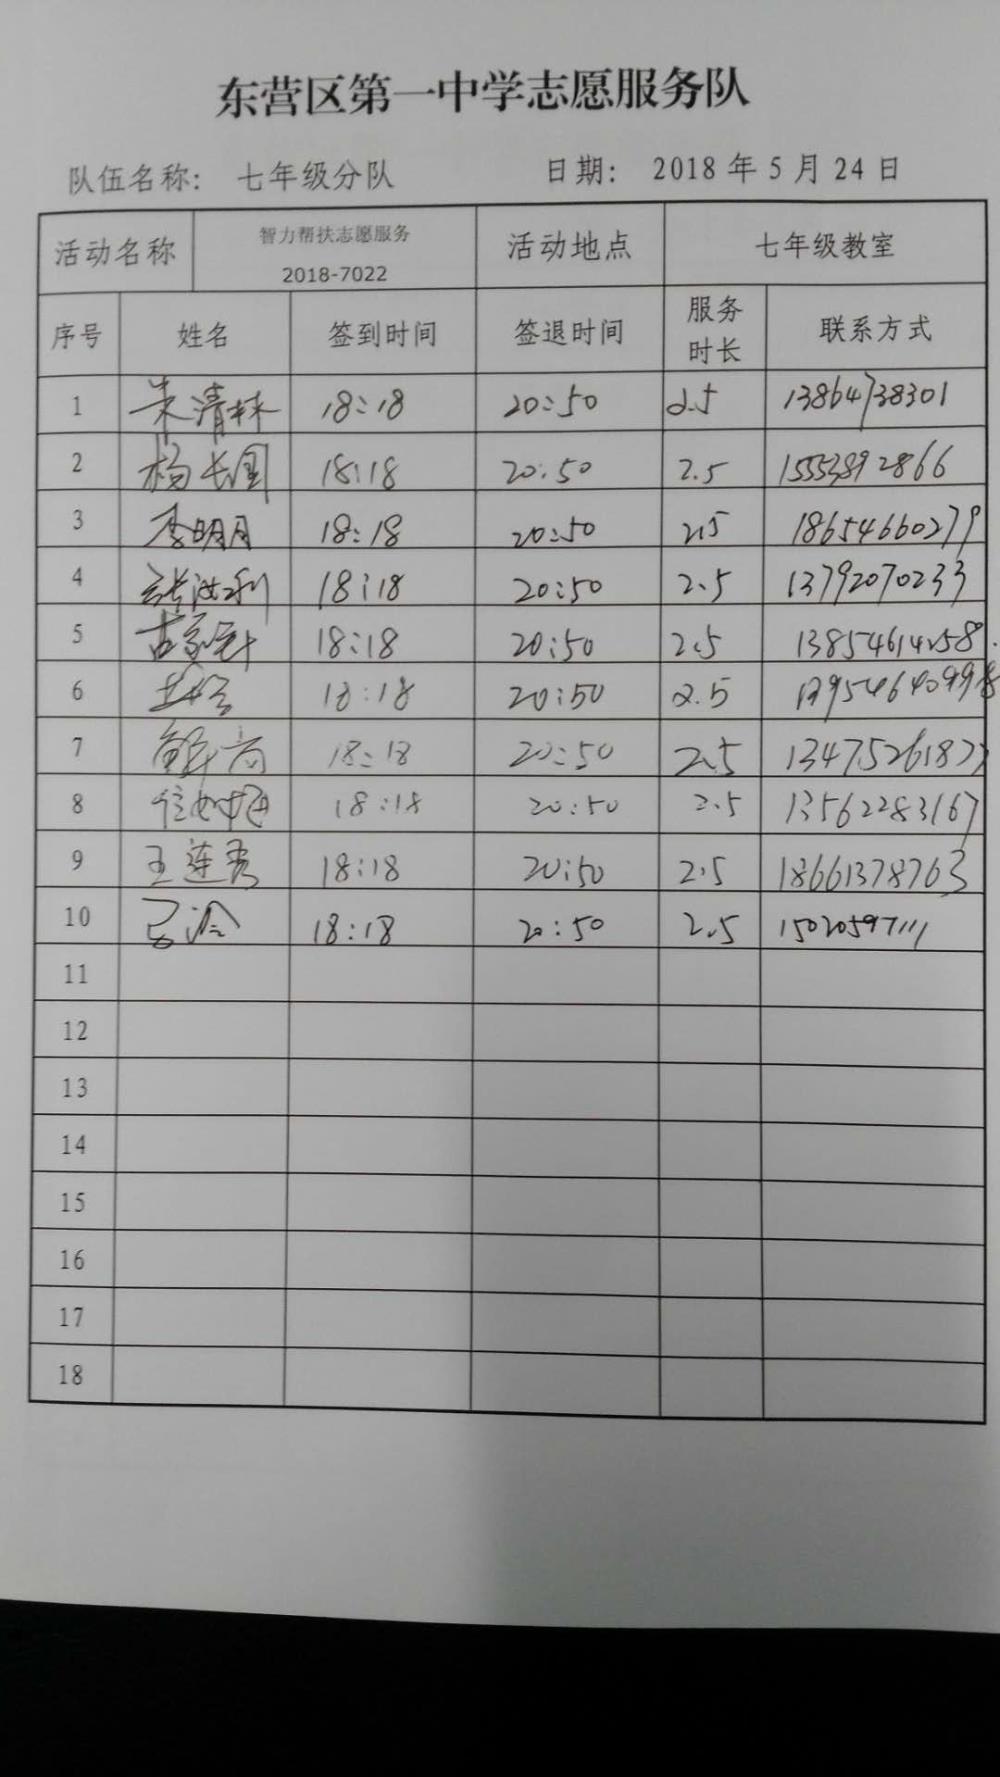 东营区第一中学志愿服务队
队伍名称: 七年级分队 日期: 2018 年 5 月 24 日
活动名称 智力帮扶志愿服务 2018-7022 活动地点 七年级教室
序号 姓名 签到时间 签退时间 服务时长 联系方式
1 朱清林 18:18 20:50 2.5 13864738301
2 杨长国 18:18 20:50 2.5 15553892866
3 李明月 18:18 20:50 2.5 18654660279
4 张洪利 18:18 20:50 2.5 13792070233
5 18:18 20:50 2.5
6 18:18 20:50 2.5
7 18:18 20:50 2.5
8 18:18 20:50 2.5 13562283167
9 王连秀 18:18 20:50 2.5 18661378763
10 18:18 20:50 2.5 15020597111
11
12
13
14
15
16
17
18